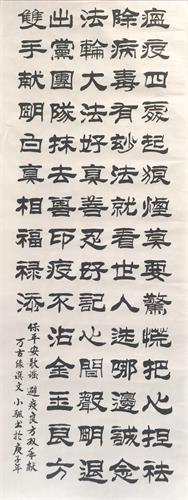 瘟疫四處起狼煙莫要驚慌把心担祛
除病毒有妙法就看世人選哪邊誠念
法輪大法好真善忍好記心間聲明退
出黨團隊抹去獸印疫不沾金玉良方
雙手献明白真相福禄添
保平安歌谣 避疫良方双手献
万古缘撰文 小书於庚子年